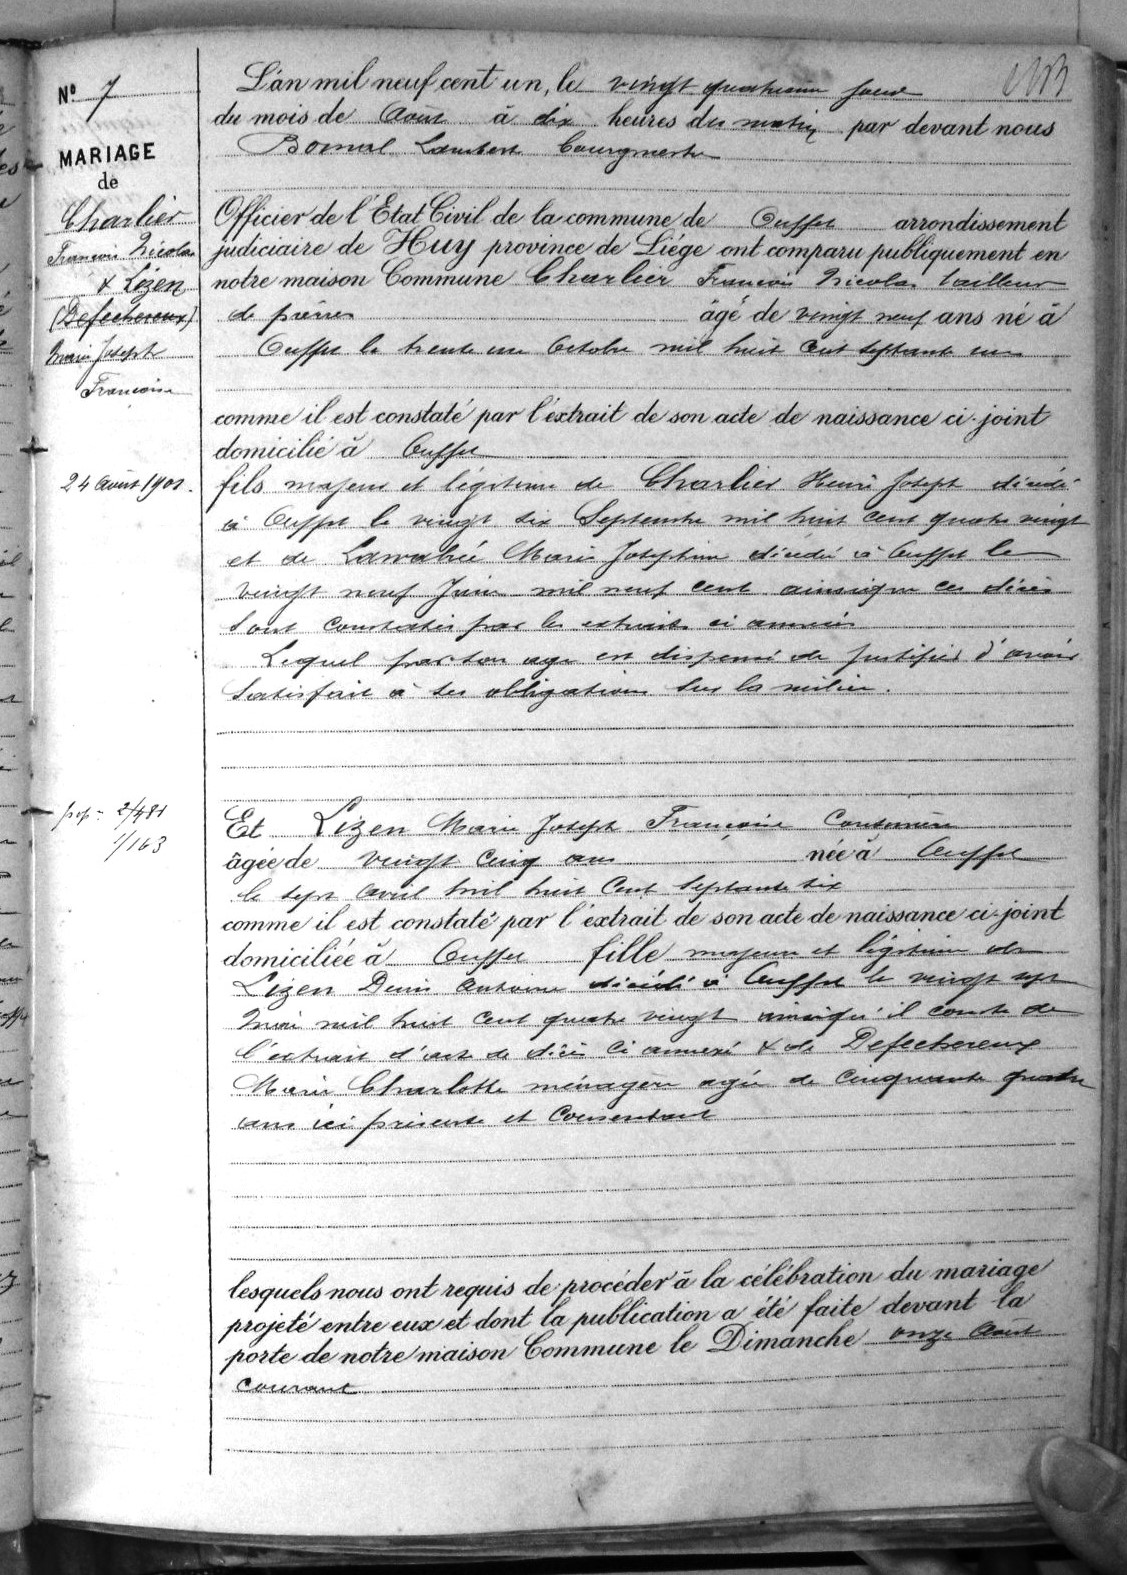 N° 7
MARIAGE
de
Charlier
François Nicolas
& Lizen
(Defechereux)
Marie Joseph
Françoise
24 Août 1901.
2/481
1/163
L'an mil neuf cent un, le vingt quatrième jour
du mois de Août à dix heures du matin par devant nous
Bomal Lambert bourgmestre
Officier de l'Etat Civil de la commune de Ouffet arrondissement
judiciaire de Huy province de Liége ont comparu publiquement en
notre maison Commune Charlier François Nicolas tailleur
de pierres âgé de vingt neuf ans né à
Ouffet le trente un Octobre mil huit cent septante un
comme il est constaté par l'éxtrait de son acte de naissance ci-joint
domicilié à Ouffet
fils majeur et légitime de Charlier Henri Joseph décédé
à Ouffet le vingt six Septembre mil huit cent quatre vingt
et de Lawarée Marie Joséphine décédée à Ouffet le
vingt neuf Juin mil neuf cent ainsi que ces décès
sont constatés par les extraits ci annexés
Lequel par son age est dispensé de justifier d'avoir
satisfait à ses obligations sur la milice.
Et Lizen Marie Joseph Françoise Couturière
âgée de vingt cinq ans née à Ouffet
le sept avril mil huit cent septante six
comme il est constaté par l'éxtrait de son acte de naissance ci-joint
domiciliée à Ouffet fille majeure et légitime de
Lizen Denis Antoine décédé à Ouffet le vingt sept
Mai mil huit cent quatre vingt ainsi qu'il conste de
l'extrait d'acte de décès ci annexé & de Defechereux
Marie Charlotte ménagère agée de cinquante quatre
ans ici présente et consentant
lesquels nous ont requis de procéder à la célébration du mariage
projeté entre eux et dont la publication a été faite devant la
porte de notre maison Commune le Dimanche onze Août
courant